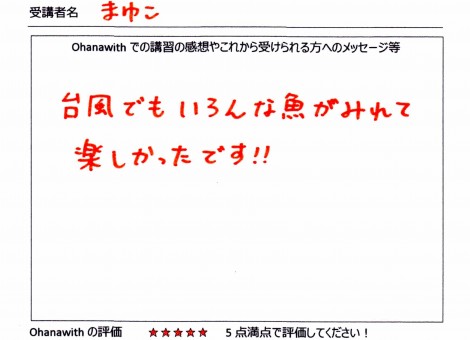 受講者名 まゆこ
Ohanawith での講習の感想やこれから受けられる方へのメッセージ等
台風でもいろんな魚がみれて
楽しかったです!!
Ohanawith の評価 ★★★★★ 5 点満点で評価してください！